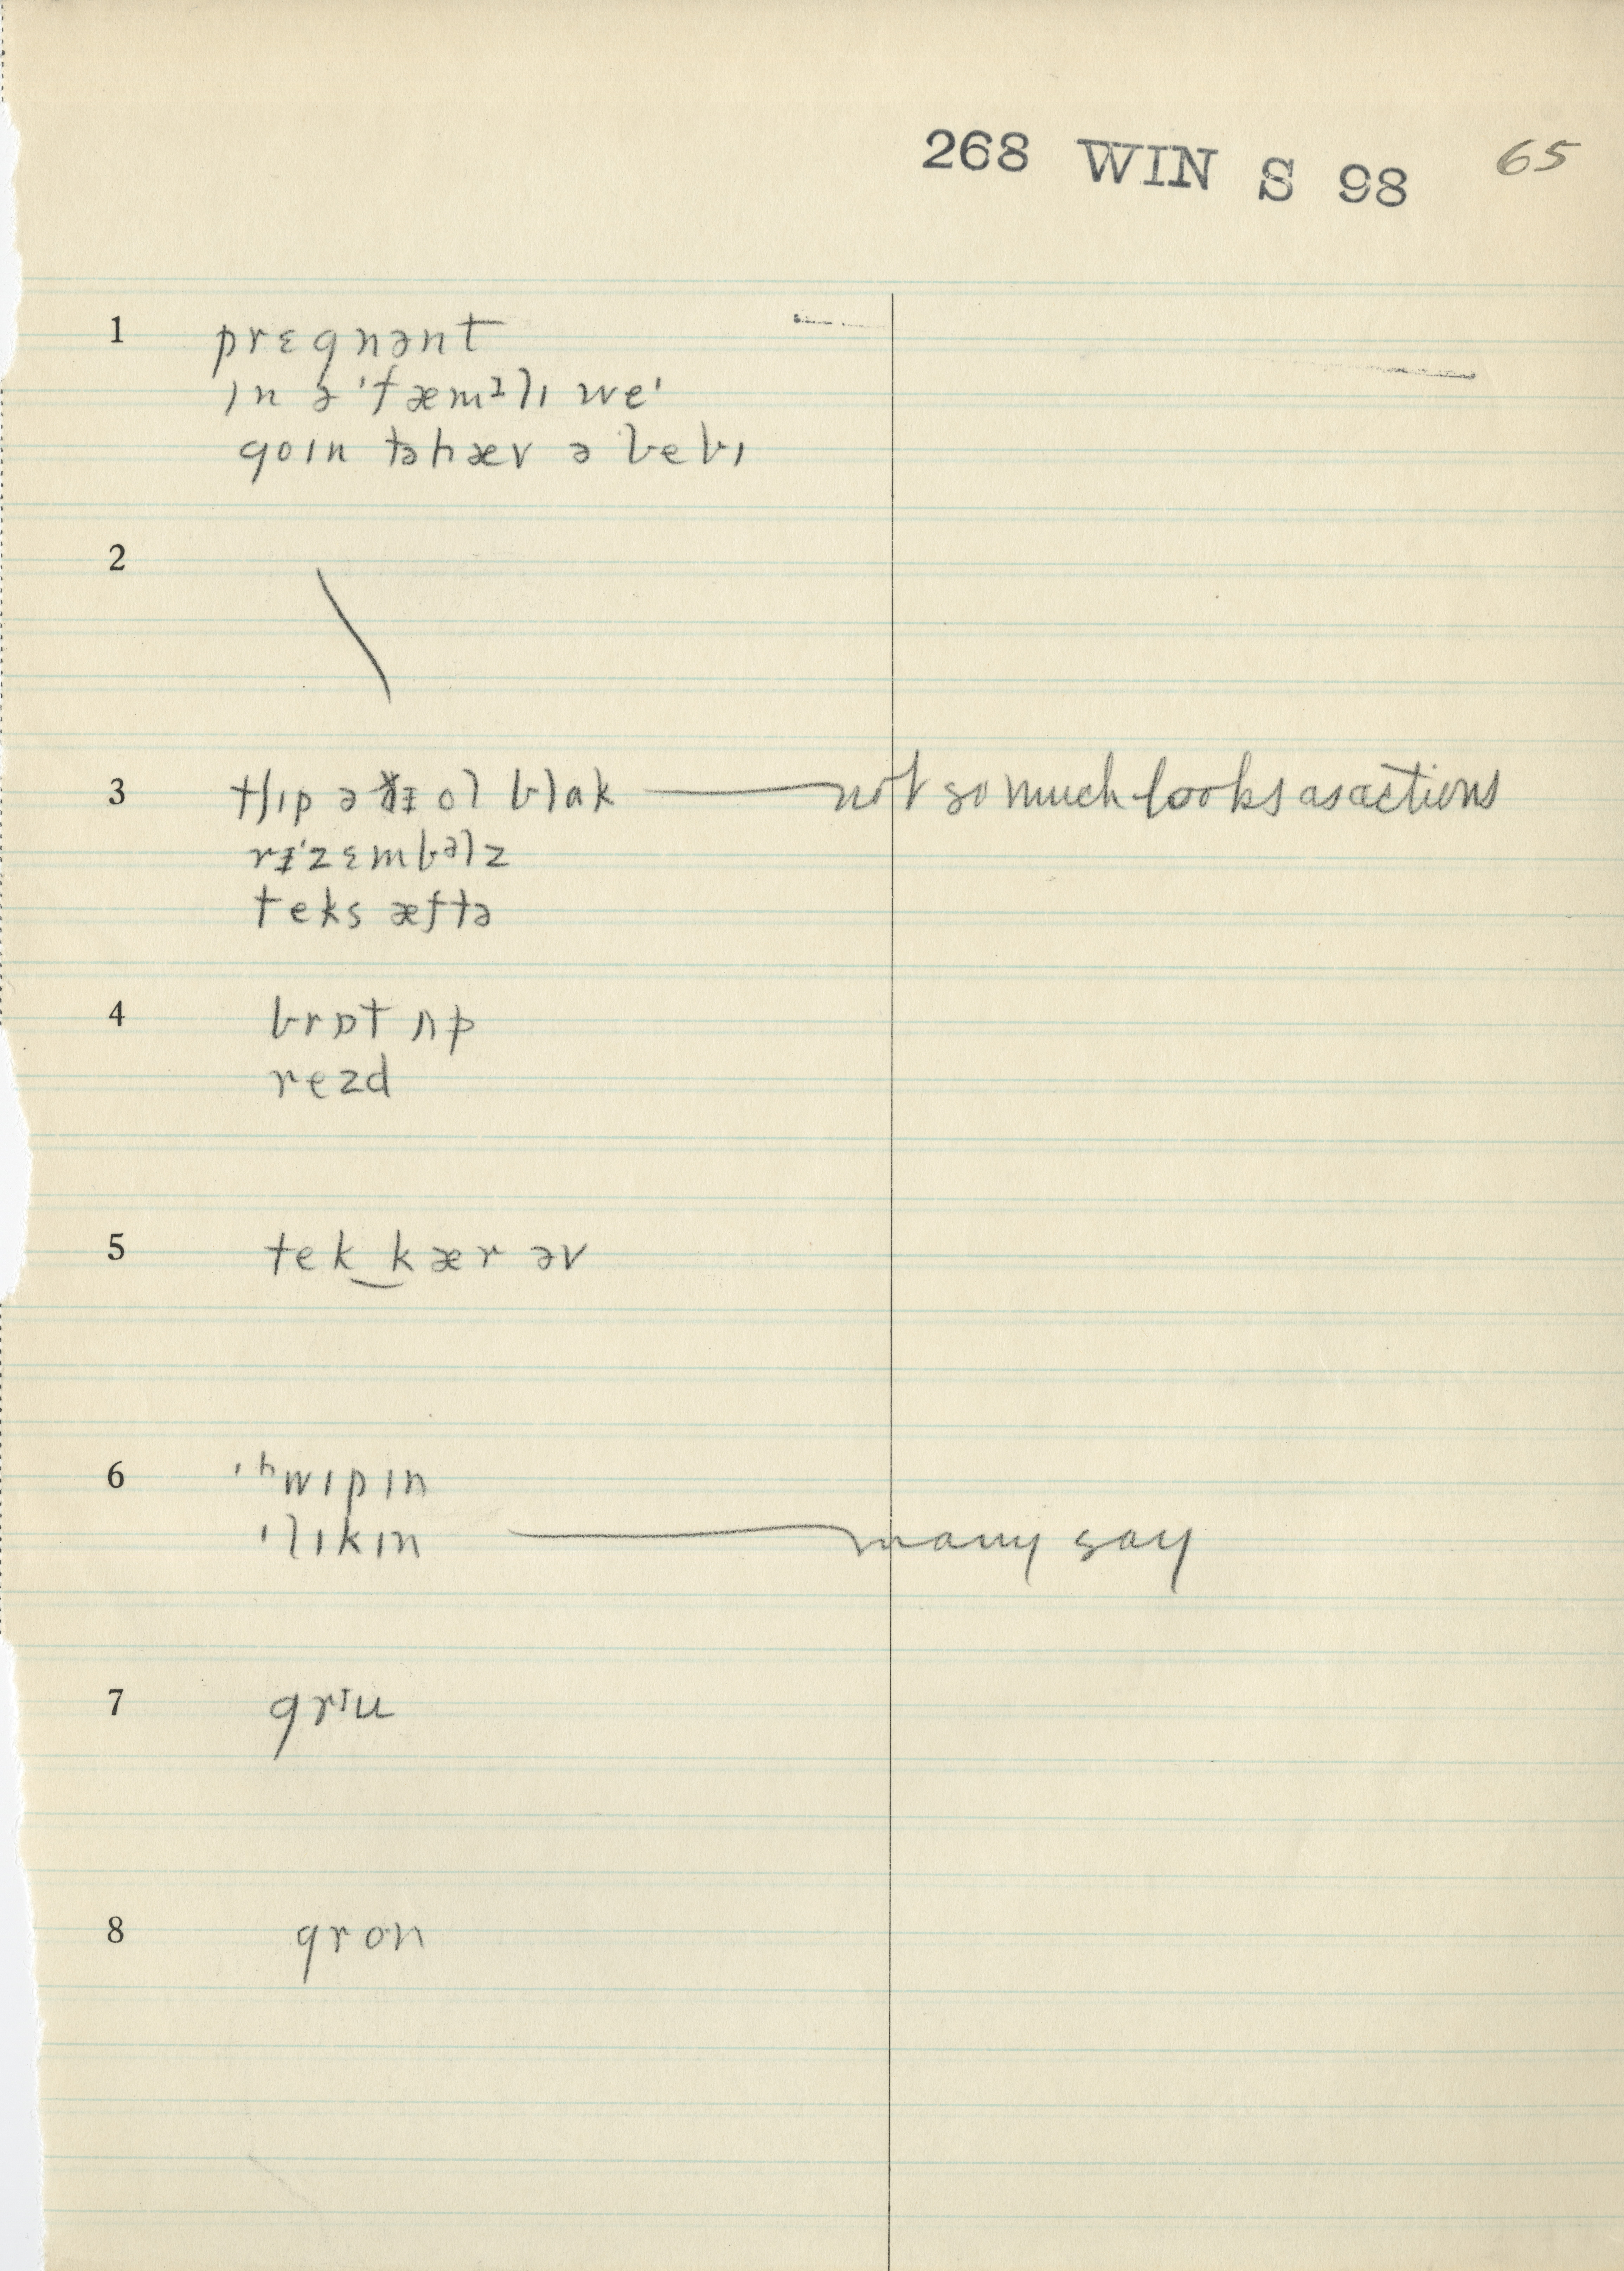 268 WIN S 98 65
1 prɛgnənt
ɪn ə ˈfæmᵻlɪ weˈ
goɪn tə hæv ə bebɪ
2
3 tʃɪp ə ðɪ ol blɑk — not so much looks as actions
rɪˈzɛmbəlz
teks æftə
4 brɒt ʌp
rezd
5 tek‿kær əv
6 ˈʰwɪpɪn
ˈlɪkɪn — many say
7 grɪu
8 gron